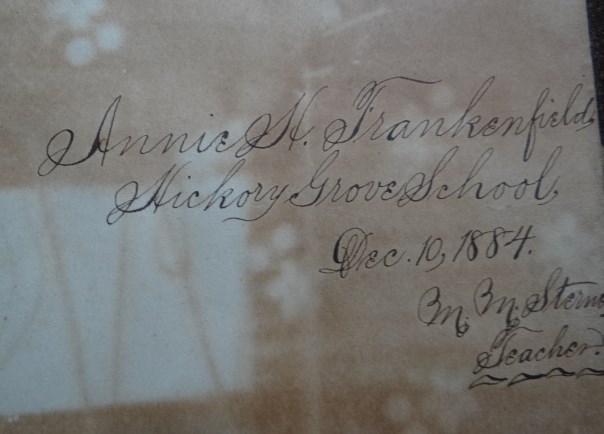 Annie H. Frankenfield,
Hickory Grove School,
Dec. 10, 1884.
M. M. Sterne
Teacher.